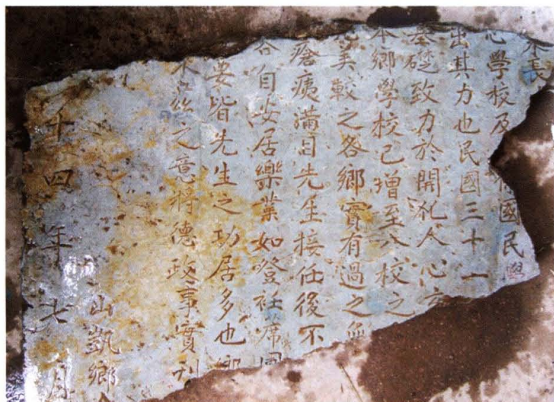 心學校及
國民學
出其力也民國三十一
基礎致力於開化人心
本鄉學校已增至八校之
美較之各鄉實有過之無
瘡痍滿目先生接任後不
各自安居樂業如登衽席
安皆先生之功居多也
之意將德政事實刊
山凱鄉
十四年七月